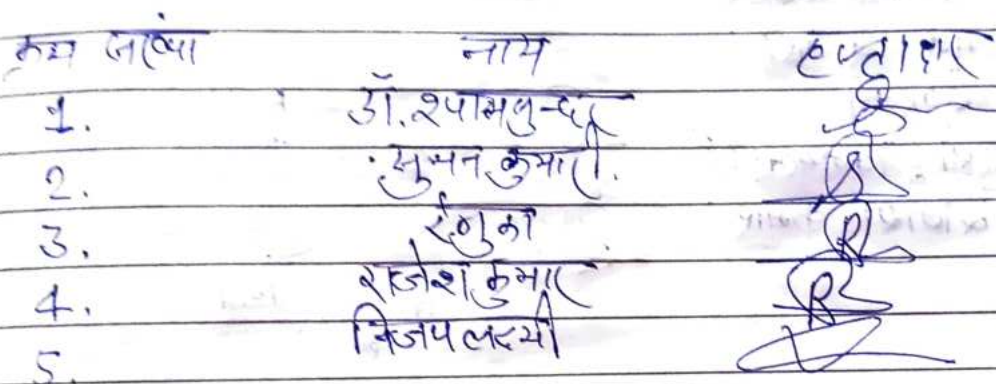 क्रम संख्या नाम हस्ताक्षर
1. डॉ. श्यामसुन्दर
2. सुमन कुमारी
3. रेणुका
4. राजेश कुमार
5. विजयलक्ष्मी